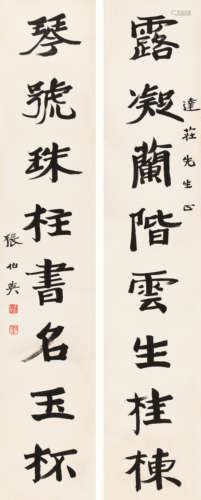 露凝蘭階雲生桂棟
達莊先生正
琴號珠柱書名玉杯
張伯英